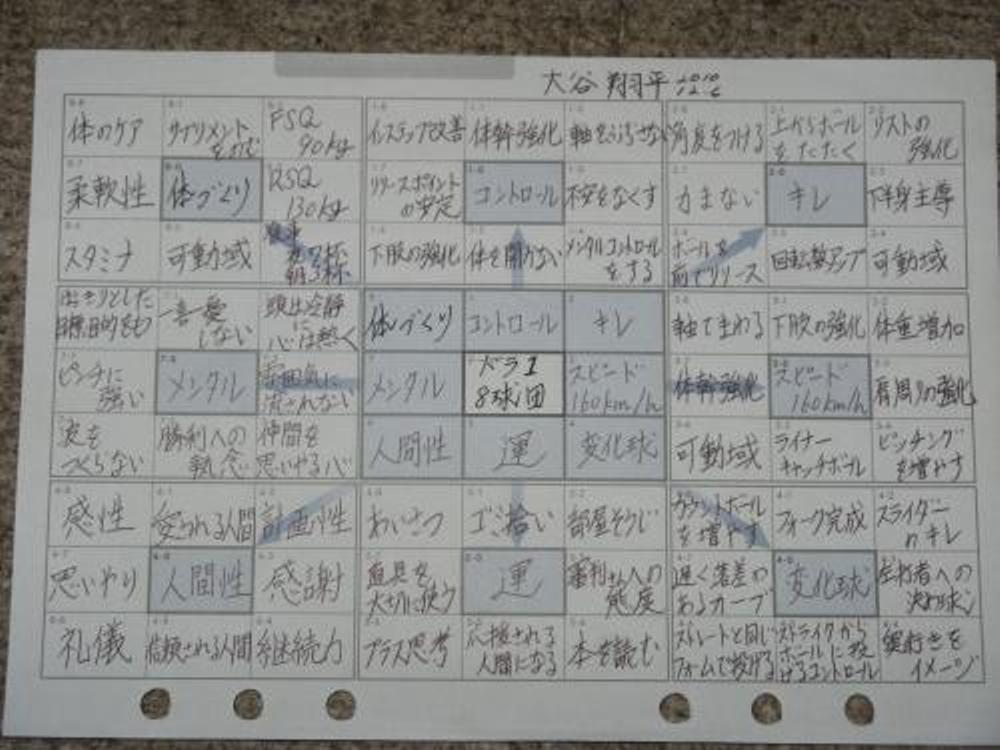 大谷 翔平
体のケア
サプリメント
をのむ
FSQ
90kg
柔軟性
体づくり
RSQ
130kg
スタミナ
可動域
食事
夜7杯
朝3杯
インステップ改善
体幹強化
軸をぶらさない
リリースポイント
の安定
コントロール
不安をなくす
下肢の強化
体を開かない
メンタルコントロール
をする
角度をつける
上からボール
をたたく
リストの
強化
力まない
キレ
下半身主導
ボールを
前でリリース
回転数アップ
可動域
はっきりとした
目標目的をもつ
一喜一憂
しない
頭は冷静
に
心は熱く
ピンチに
強い
メンタル
雰囲気に
流されない
波を
つくらない
勝利への
執念
仲間を
思いやる心
体づくり
コントロール
キレ
メンタル
ドラ1
8球団
スピード
160km/h
人間性
運
変化球
軸でまわる
下肢の強化
体重増加
体幹強化
スピード
160km/h
肩周りの強化
可動域
ライナー
キャッチボール
ピッチング
を増やす
感性
愛される人間
計画性
思いやり
人間性
感謝
礼儀
信頼される人間
継続力
あいさつ
ゴミ拾い
部屋そうじ
道具を
大切に使う
運
審判さんへの
態度
プラス思考
応援される
人間になる
本を読む
カウントボール
を増やす
フォーク完成
スライダー
のキレ
遅く落差の
あるカーブ
変化球
左打者への
決め球
ストレートと同じ
フォームで投げる
ストライクから
ボールに投
げるコントロール
奥行きを
イメージ